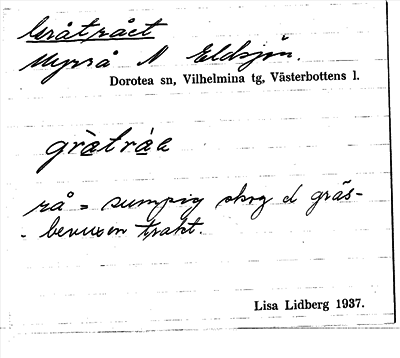 Gråtrået
Myrrå N Eldsjön.
Dorotea sn, Vilhelmina tg, Västerbottens l.
gràtráe
rå = sumpig skog el gräs-
- bevuxen trakt.
Lisa Lidberg 1937.